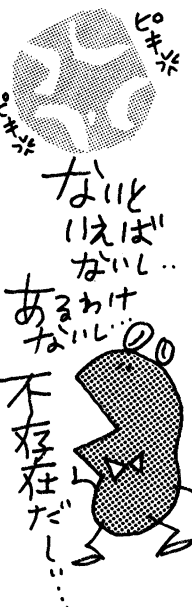 ピキ
ピキ
ないと
いえば
ないし‥
あるわけ
ないし…
不存在だし…‥